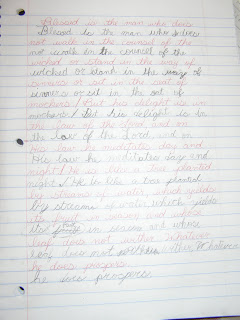 Blessed is the man who does
Blessed is the man who does
not walk in the counsel of the
not walk in the counsel of the
wicked or stand in the way of
wicked or stand in the way of
sinners or sit in the seat of
sinners or sit in the seat of
mockers / But his delight is in
mockers / but his delight is in
the law of the Lord, and on
the law of the Lord, and on
His law he meditates day and
His law he meditates day and
night / He is like a tree planted
night / He is like a tree planted
by streams of water which yields
by streams of water which yields
its fruit in season and whose
its fruit in season and whose
leaf does not wither. Whatever
leaf does not wither. Whatever
he does prospers.
he does prospers.